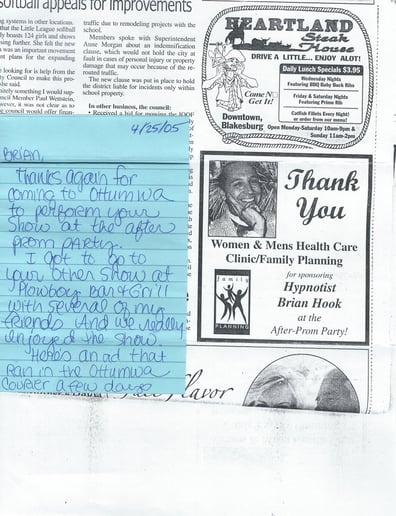 softball appeals for improvements
ng systems in other locations.
that the Little League softball
buly boasts 124 girls and shows
sing further. She felt the new
was an important movement
nt plans for the expanding
looking for a help from the
y Council to make this pro-
she said.
nitely something I would sup-
uncil Member Paul Weinstein,
owever, it was not clear as to
e council would offer finan-
traffic due to remodeling projects with the
school.
Members spoke with Superintendent
Anne Morgan about an indemnification
clause, which would not hold the city at
fault in cases of personal injury or property
damage that may occur because of the re-
routed traffic.
The new clause was put in place to hold
the district liable for incidents only within
school property.
In other business, the council:
• Received a bid for mowing the IOOF
HEARTLAND
Steak
House
DRIVE A LITTLE... ENJOY ALOT!
Daily Lunch Specials $3.95
Wednesday Nights
Featuring BBQ Baby Back Ribs
Friday & Saturday Nights
Featuring Prime Rib
Catfish Fillets Every Night!
or order from our menu!
Come N
Get It!
Downtown,
Blakesburg
Open Monday-Saturday 10am-9pm &
Sunday 11am-2pm
4/25/05
Brian,
Thanks again for
coming to Ottumwa
to perform your
show at the after
prom party.
I got to go to
your other show at
Plowboy Bar & Grill
with several of my
friends And we really
enjoyed the show.
Heres an ad that
ran in the Ottumwa
Courier a few days
Thank
You
Women & Mens Health Care
Clinic/Family Planning
family
PLANNING
for sponsoring
Hypnotist
Brian Hook
at the
After-Prom Party!
Flavor